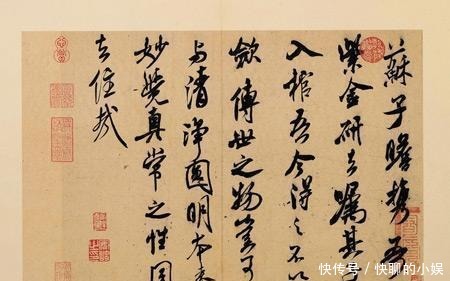 蘇子瞻携吾
紫金研去嘱其子
入棺吾今得之不以
斂傳世之物豈可
与清淨圓明本来
妙覺真常之性同
去住哉
快传号 / 快聊的小娱